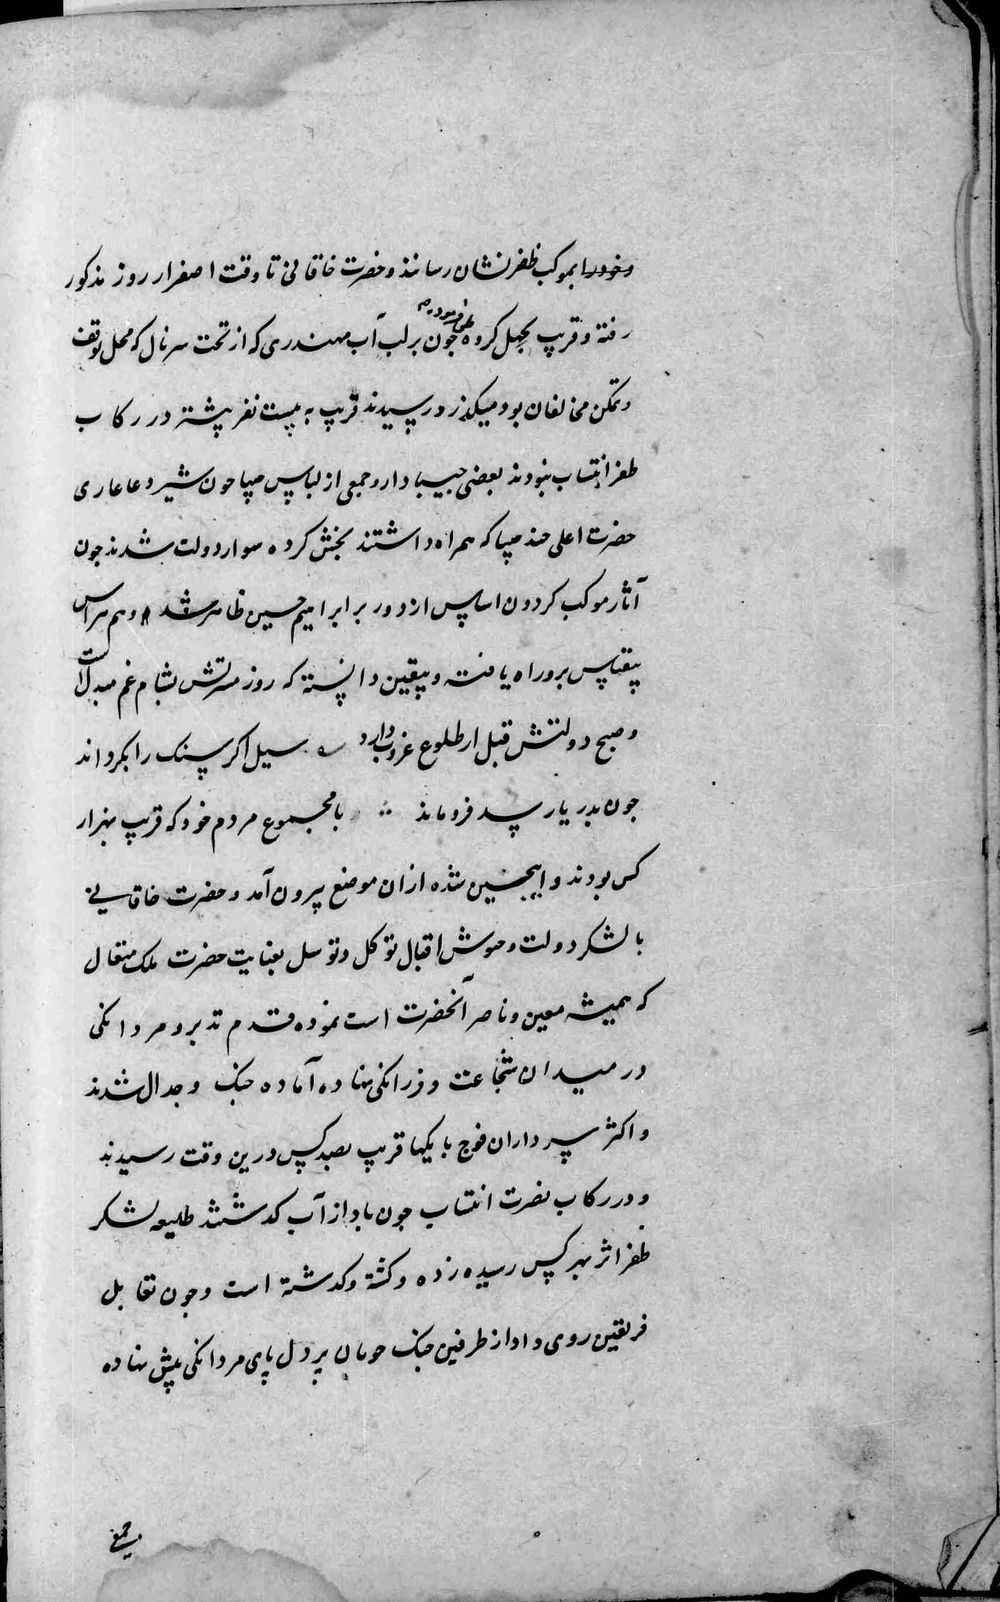 و خود را بموکب ظفر نشان رسانند و حضرت خاقانی تا وقت اصفرار روز مذکور
رفته و قریب بچهل کروه طی فرمودند چون بر لب آب مهندری که از تحت سرنال که محل توقف
و تمکن مخالفان بود میکذرد رسیدند قریب به بیست نفر پشتر در رکاب
ظفر انتساب نبودند بعضی جیبا دار و جمعی از لباس جیبا چون شیر دغا عاری
حضرت اعلی چند جیبا که همراه داشتند بخش کرده سوار دولت شدند چون
آثار موکب کردون اساس از دور بر ابراهیم حسین ظاهر شد وهم هراس
بیقیاس برو راه یافت و بیقین دانسته که روز مسرتش بشام غم مبدل است
و صبح دولتش قبل از طلوع غروب دارد سیل اکر سنک را بکرداند
چون بدریا رسد فروماند با مجموع مردم خود که قریب بهزار
کس بودند از ان موضع بیرون آمد و حضرت خاقانی
با لشکر دولت و جیوش اقبال توکل و توسل بعنایت حضرت ملک متعال
که همیشه معین و ناصر آنحضرت است نموده قدم تدبر و مردانکی
در میدان شجاعت و فرزانکی نهاده آماده جنک و جدال شدند
و اکثر سرداران فوج با یکها قریب بصد کس درین وقت رسیدند
و در رکاب نصرت انتساب چون باد از آب کدشتند طلیعه لشکر
ظفر اثر بهر کس رسیده زده و کشته و کدشته است و چون تقابل
فریقین روی داد از طرفین جنک جویان پر دل پای مردانکی پیش نهاده
جمعی